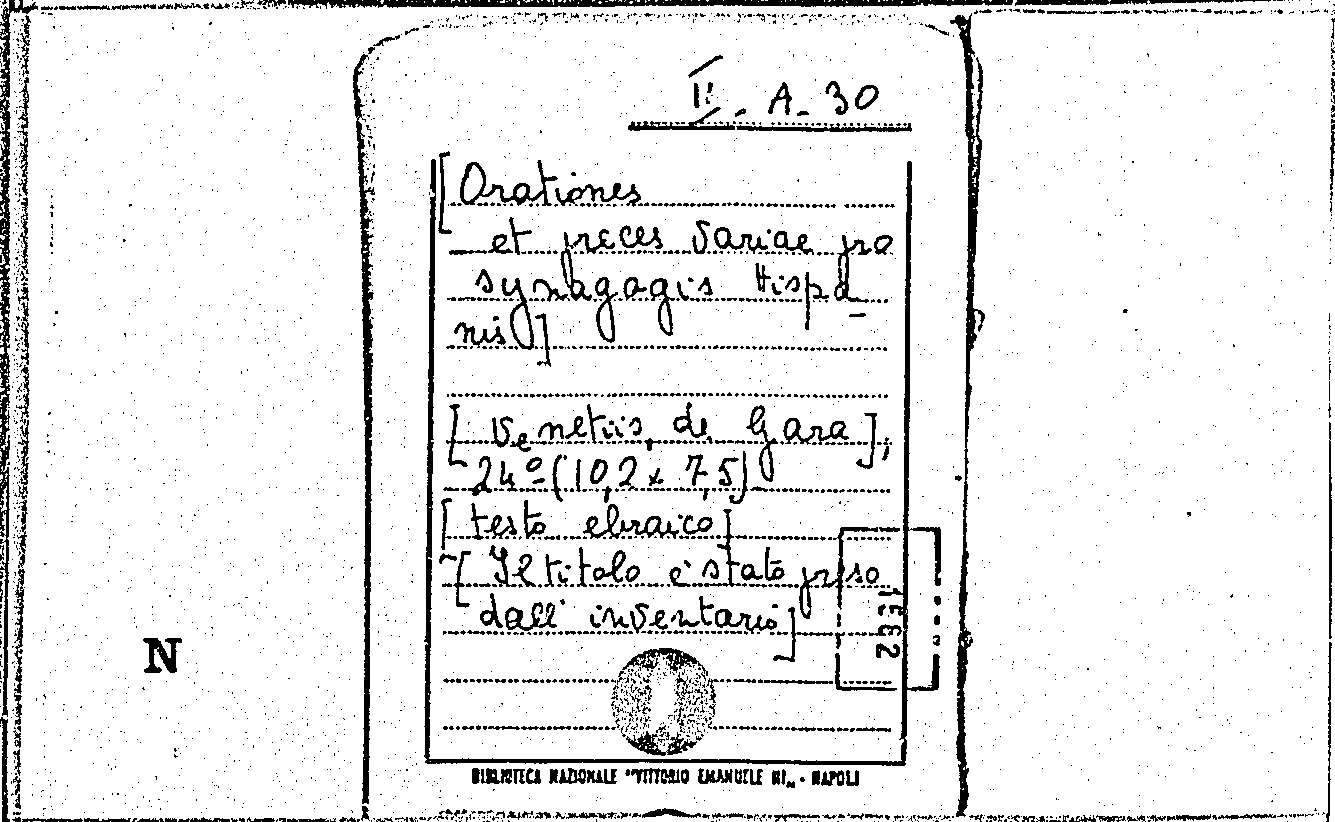 II. - A - 30
[Orationes
et preces variae pro
synagogis Hispa_
nis]
[Venetiis, de Gara],
24º (10,2 x 7,5)
[testo ebraico]
[Il titolo è stato preso
dall'inventario]
N
BIBLIOTECA NAZIONALE "VITTORIO EMANUELE III„ - NAPOLI